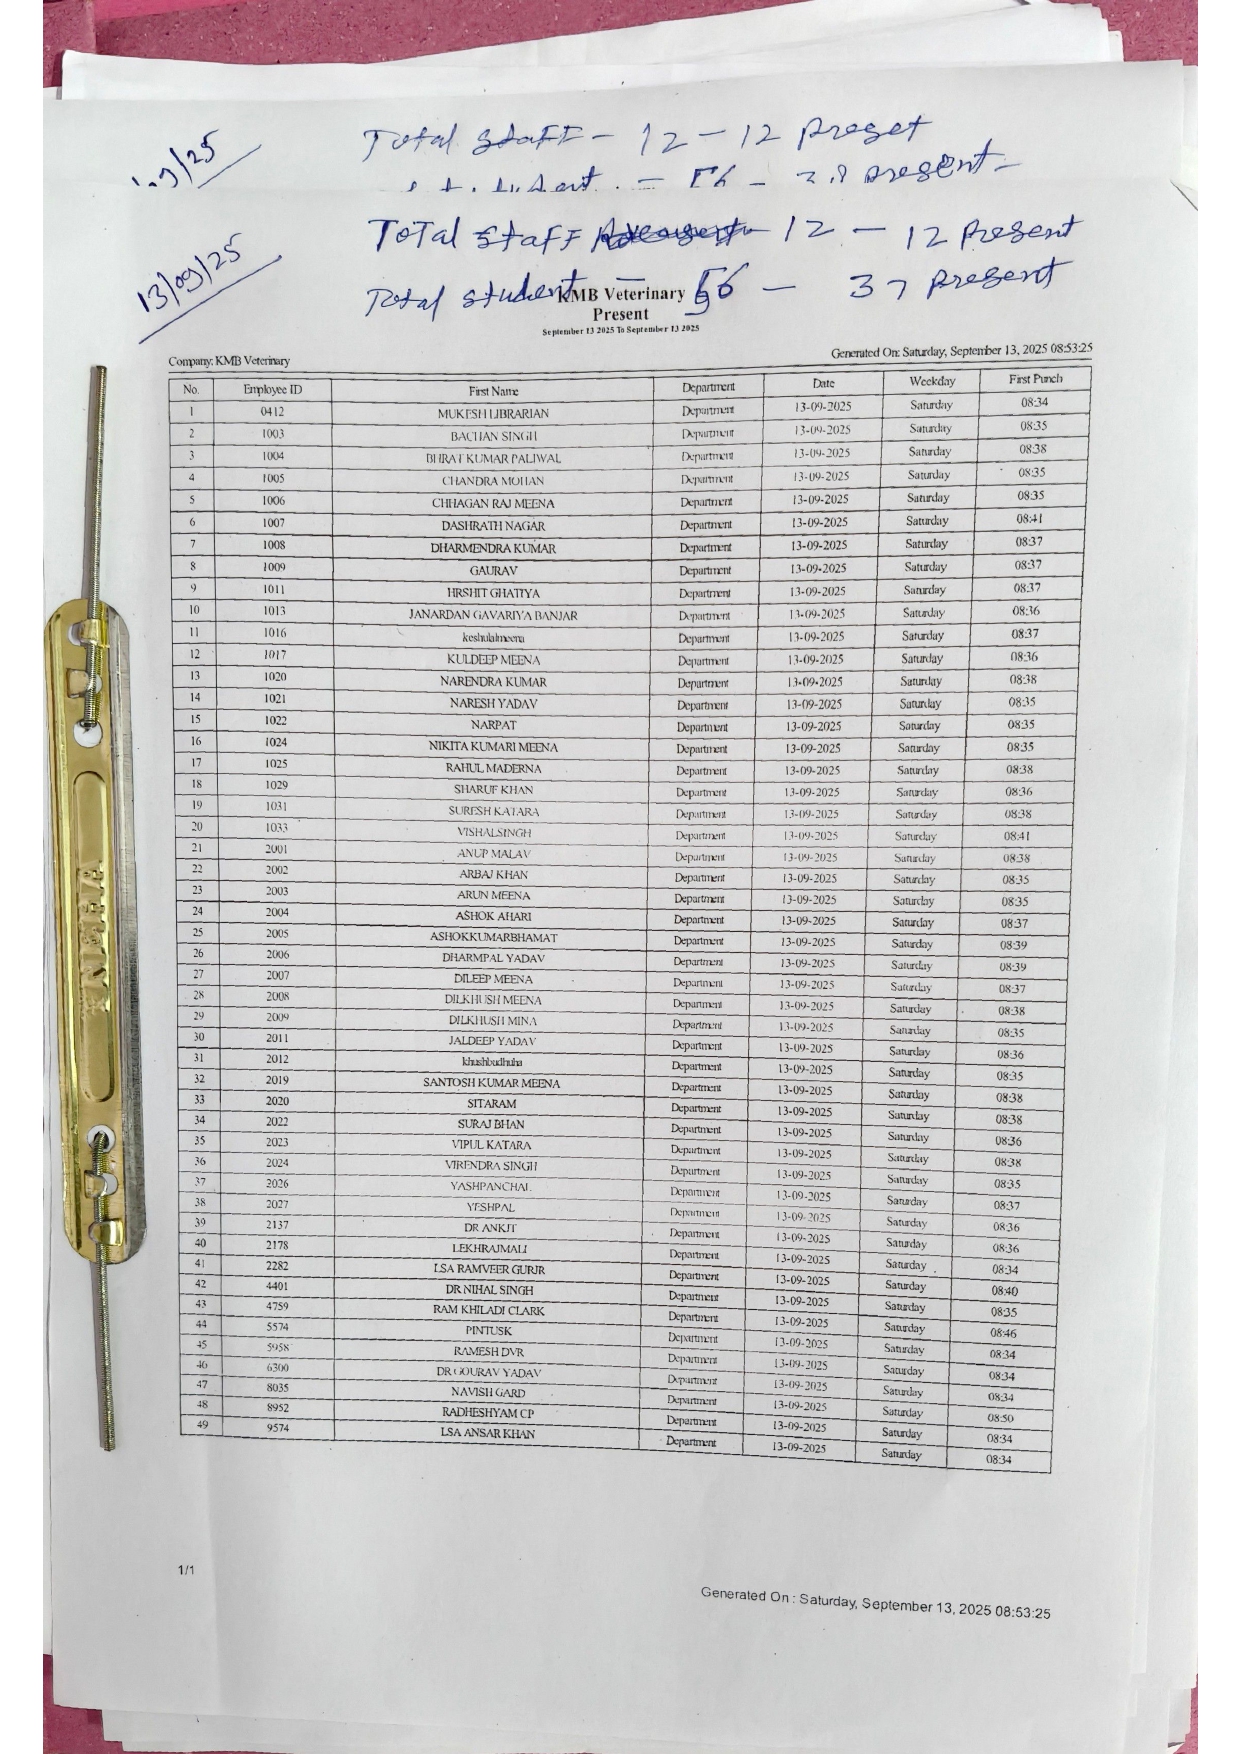 09/25
Total staff - 12 - 12 preset
- 56 - 38 present -
13/09/25
Total staff 12 - 12 present
Total student - 56 - 37 present
KMB Veterinary
Present
September 13 2025 To September 13 2025
Company: KMB Veterinary Generated On: Saturday, September 13, 2025 08:53:25
No. Employee ID First Name Department Date Weekday First Punch
1 0412 MUKESH LIBRARIAN Department 13-09-2025 Saturday 08:34
2 1003 BACHAN SINGH Department 13-09-2025 Saturday 08:35
3 1004 BHRAT KUMAR PALIWAL Department 13-09-2025 Saturday 08:38
4 1005 CHANDRA MOHAN Department 13-09-2025 Saturday 08:35
5 1006 CHHAGAN RAJ MEENA Department 13-09-2025 Saturday 08:35
6 1007 DASHRATH NAGAR Department 13-09-2025 Saturday 08:41
7 1008 DHARMENDRA KUMAR Department 13-09-2025 Saturday 08:37
8 1009 GAURAV Department 13-09-2025 Saturday 08:37
9 1011 HRSHIT GHATIYA Department 13-09-2025 Saturday 08:37
10 1013 JANARDAN GAVARIYA BANJAR Department 13-09-2025 Saturday 08:36
11 1016 keshulalmeena Department 13-09-2025 Saturday 08:37
12 1017 KULDEEP MEENA Department 13-09-2025 Saturday 08:36
13 1020 NARENDRA KUMAR Department 13-09-2025 Saturday 08:38
14 1021 NARESH YADAV Department 13-09-2025 Saturday 08:35
15 1022 NARPAT Department 13-09-2025 Saturday 08:35
16 1024 NIKITA KUMARI MEENA Department 13-09-2025 Saturday 08:35
17 1025 RAHUL MADERNA Department 13-09-2025 Saturday 08:38
18 1029 SHARUF KHAN Department 13-09-2025 Saturday 08:36
19 1031 SURESH KATARA Department 13-09-2025 Saturday 08:38
20 1033 VISHALSINGH Department 13-09-2025 Saturday 08:41
21 2001 ANUP MALAV Department 13-09-2025 Saturday 08:38
22 2002 ARBAJ KHAN Department 13-09-2025 Saturday 08:35
23 2003 ARUN MEENA Department 13-09-2025 Saturday 08:35
24 2004 ASHOK AHARI Department 13-09-2025 Saturday 08:37
25 2005 ASHOKKUMARBHAMAT Department 13-09-2025 Saturday 08:39
26 2006 DHARMPAL YADAV Department 13-09-2025 Saturday 08:39
27 2007 DILEEP MEENA Department 13-09-2025 Saturday 08:37
28 2008 DILKHUSH MEENA Department 13-09-2025 Saturday 08:38
29 2009 DILKHUSH MINA Department 13-09-2025 Saturday 08:35
30 2011 JALDEEP YADAV Department 13-09-2025 Saturday 08:36
31 2012 khushbudhuha Department 13-09-2025 Saturday 08:35
32 2019 SANTOSH KUMAR MEENA Department 13-09-2025 Saturday 08:38
33 2020 SITARAM Department 13-09-2025 Saturday 08:38
34 2022 SURAJ BHAN Department 13-09-2025 Saturday 08:36
35 2023 VIPUL KATARA Department 13-09-2025 Saturday 08:38
36 2024 VIRENDRA SINGH Department 13-09-2025 Saturday 08:35
37 2026 YASHPANCHAL Department 13-09-2025 Saturday 08:37
38 2027 YESHPAL Department 13-09-2025 Saturday 08:36
39 2137 DR ANKIT Department 13-09-2025 Saturday 08:36
40 2178 LEKHRAJMALI Department 13-09-2025 Saturday 08:34
41 2282 LSA RAMVEER GURJR Department 13-09-2025 Saturday 08:40
42 4401 DR NIHAL SINGH Department 13-09-2025 Saturday 08:35
43 4759 RAM KHILADI CLARK Department 13-09-2025 Saturday 08:46
44 5574 PINTUSK Department 13-09-2025 Saturday 08:34
45 5958 RAMESH DVR Department 13-09-2025 Saturday 08:34
46 6300 DR GOURAV YADAV Department 13-09-2025 Saturday 08:34
47 8035 NAVISH GARD Department 13-09-2025 Saturday 08:50
48 8952 RADHESHYAM CP Department 13-09-2025 Saturday 08:34
49 9574 LSA ANSAR KHAN Department 13-09-2025 Saturday 08:34
1/1
Generated On : Saturday, September 13, 2025 08:53:25